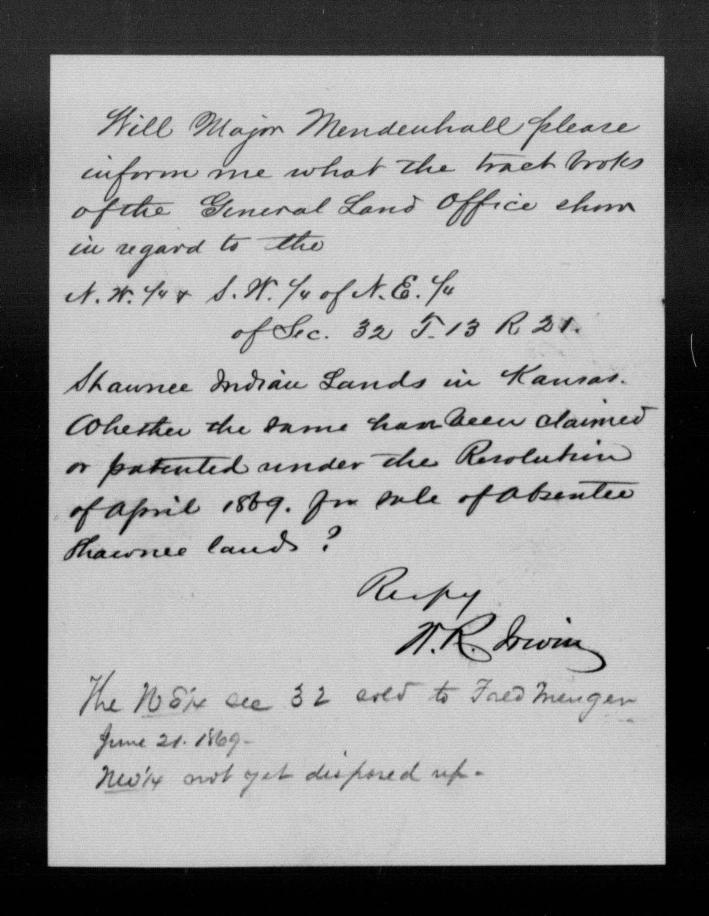 Will Major Mendenhall please
inform me what the tract books
of the General Land Office show
in regard to the
N.W. 1/4 & S.W. 1/4 of N.E. 1/4
of Sec. 32 T. 13 R 21.
Shawnee Indian Lands in Kansas.
Whether the same have been claimed
or patented under the Resolution
of April 1869. for sale of Absentee
Shawnee lands?
Respy
W.R. Irwin
The NE 1/4 sec 32 sold to Fred Menger
June 21. 1869-
NW 1/4 not yet disposed up-